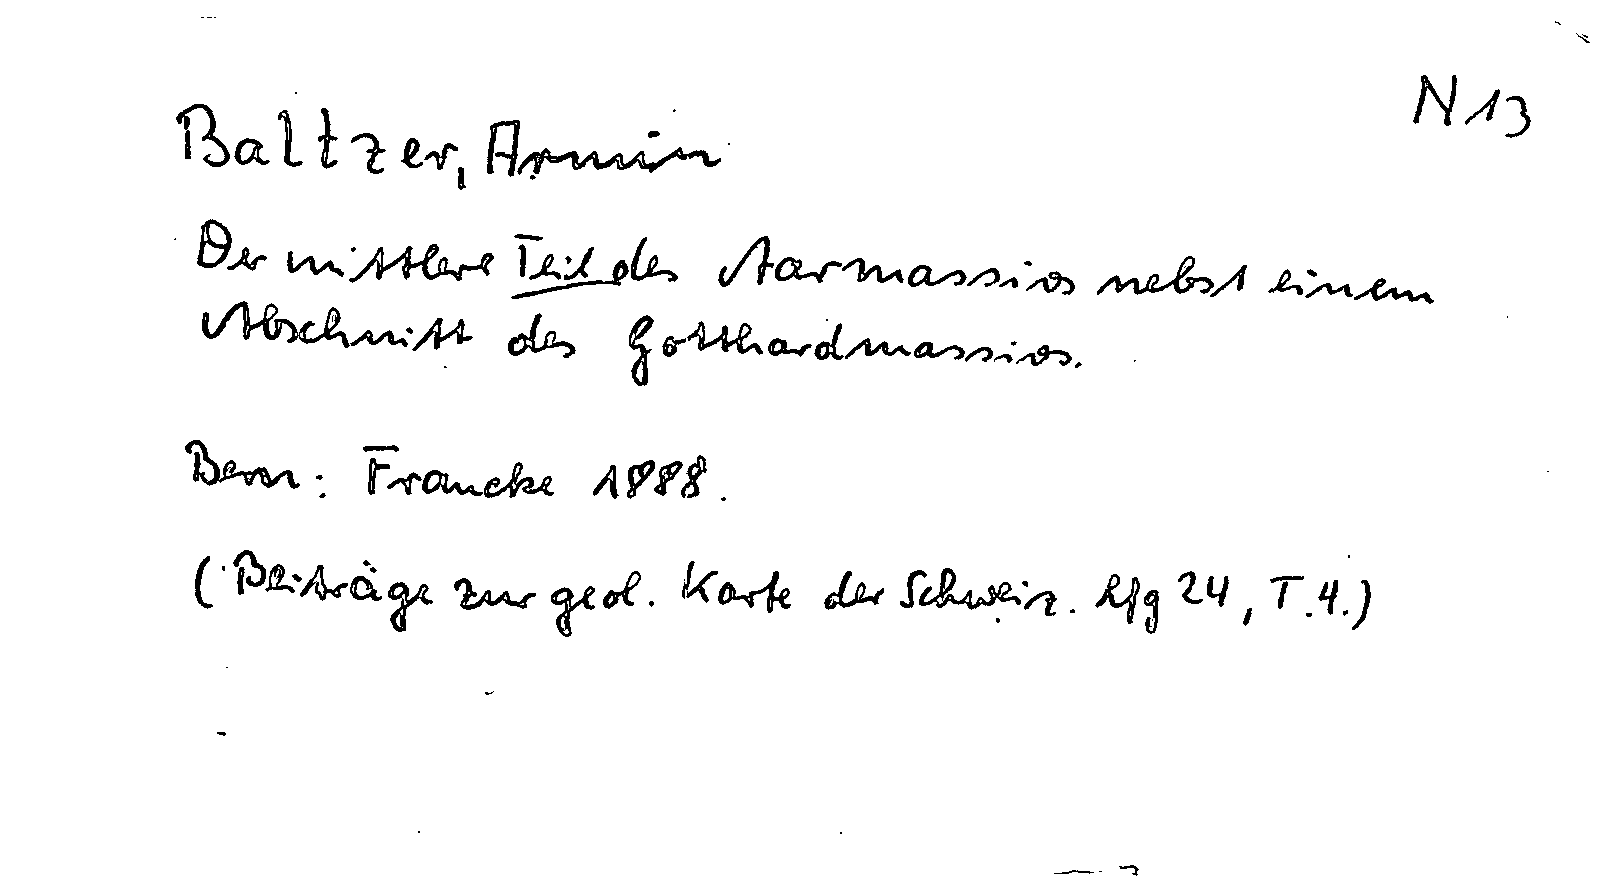 N 13
Baltzer, Armin
Der mittlere Teil des Aarmassivs nebst einem
Abschnitt des Gotthardmassivs.
Bern: Francke 1888.
(Beiträge zur geol. Karte der Schweiz. Lfg 24, T.4.)